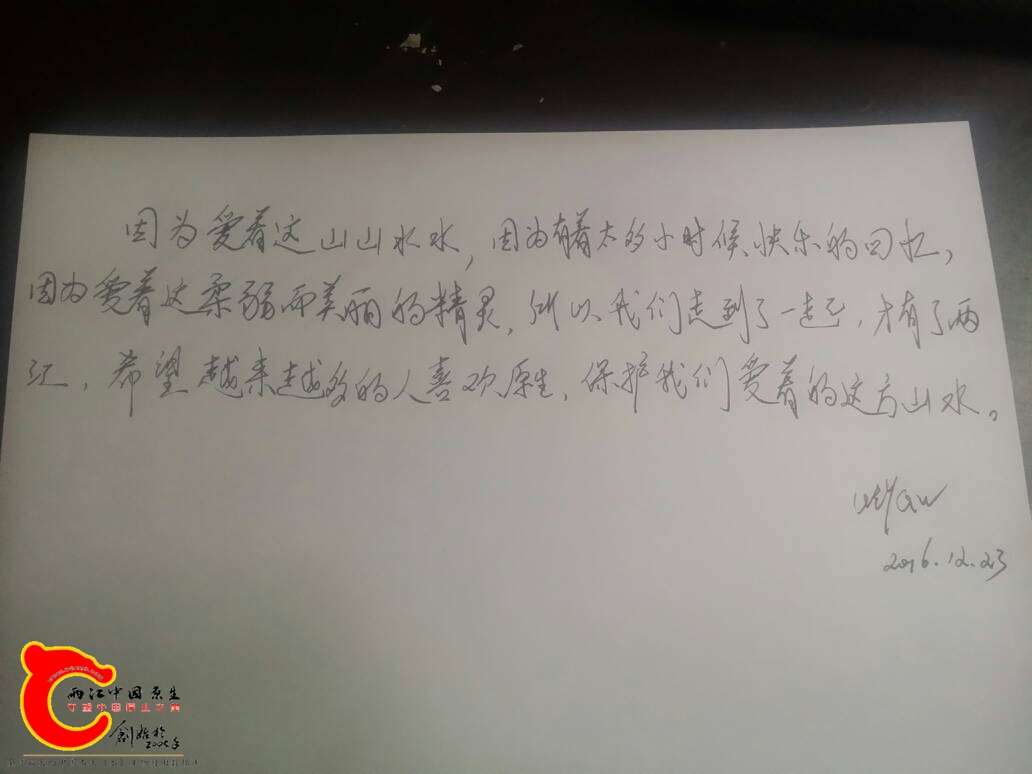 因为爱着这山山水水，因为有着太多小时候快乐的回忆，
因为爱着这柔弱而美丽的精灵，所以我们走到了一起，才有了两
江，希望越来越多的人喜欢原生，保护我们爱着的这方山水。
2016.12.23
两江中国原生
守望中国原生之美
创始于
2005年